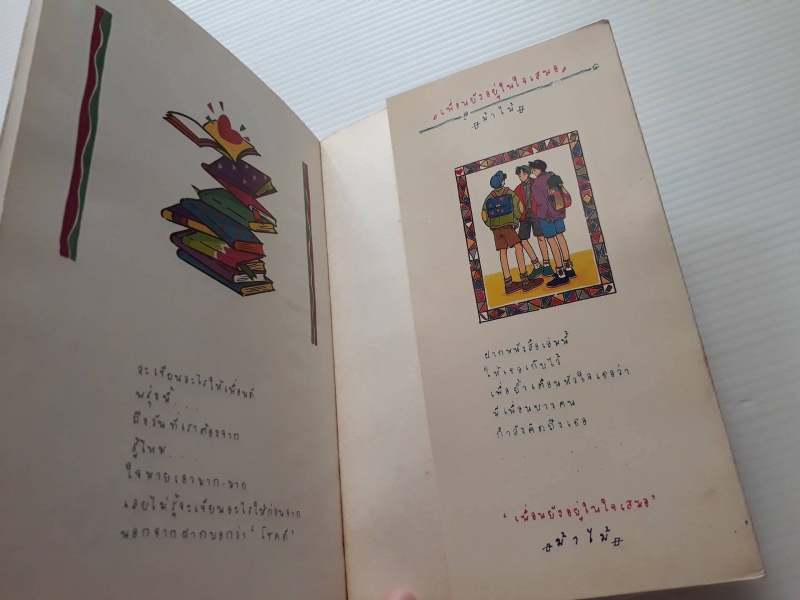 จะเขียนอะไรให้เพื่อนดี
พรุ่งนี้...
ถึงวันที่เราต้องจาก
รู้ไหม...
ใจหายเอามาก-มาก
เลยไม่รู้จะเขียนอะไรให้ก่อนจาก
นอกจากฝากบอกว่า "โชคดี"
"เพื่อนยังอยู่ในใจเสมอ"
#ม้าไม้#
ฝากหนังสือเล่มนี้
ให้เธอเก็บไว้
เพื่อย้ำเตือนหัวใจเธอว่า
มีเพื่อนบางคน
กำลังคิดถึงเธอ
"เพื่อนยังอยู่ในใจเสมอ"
#ม้าไม้#